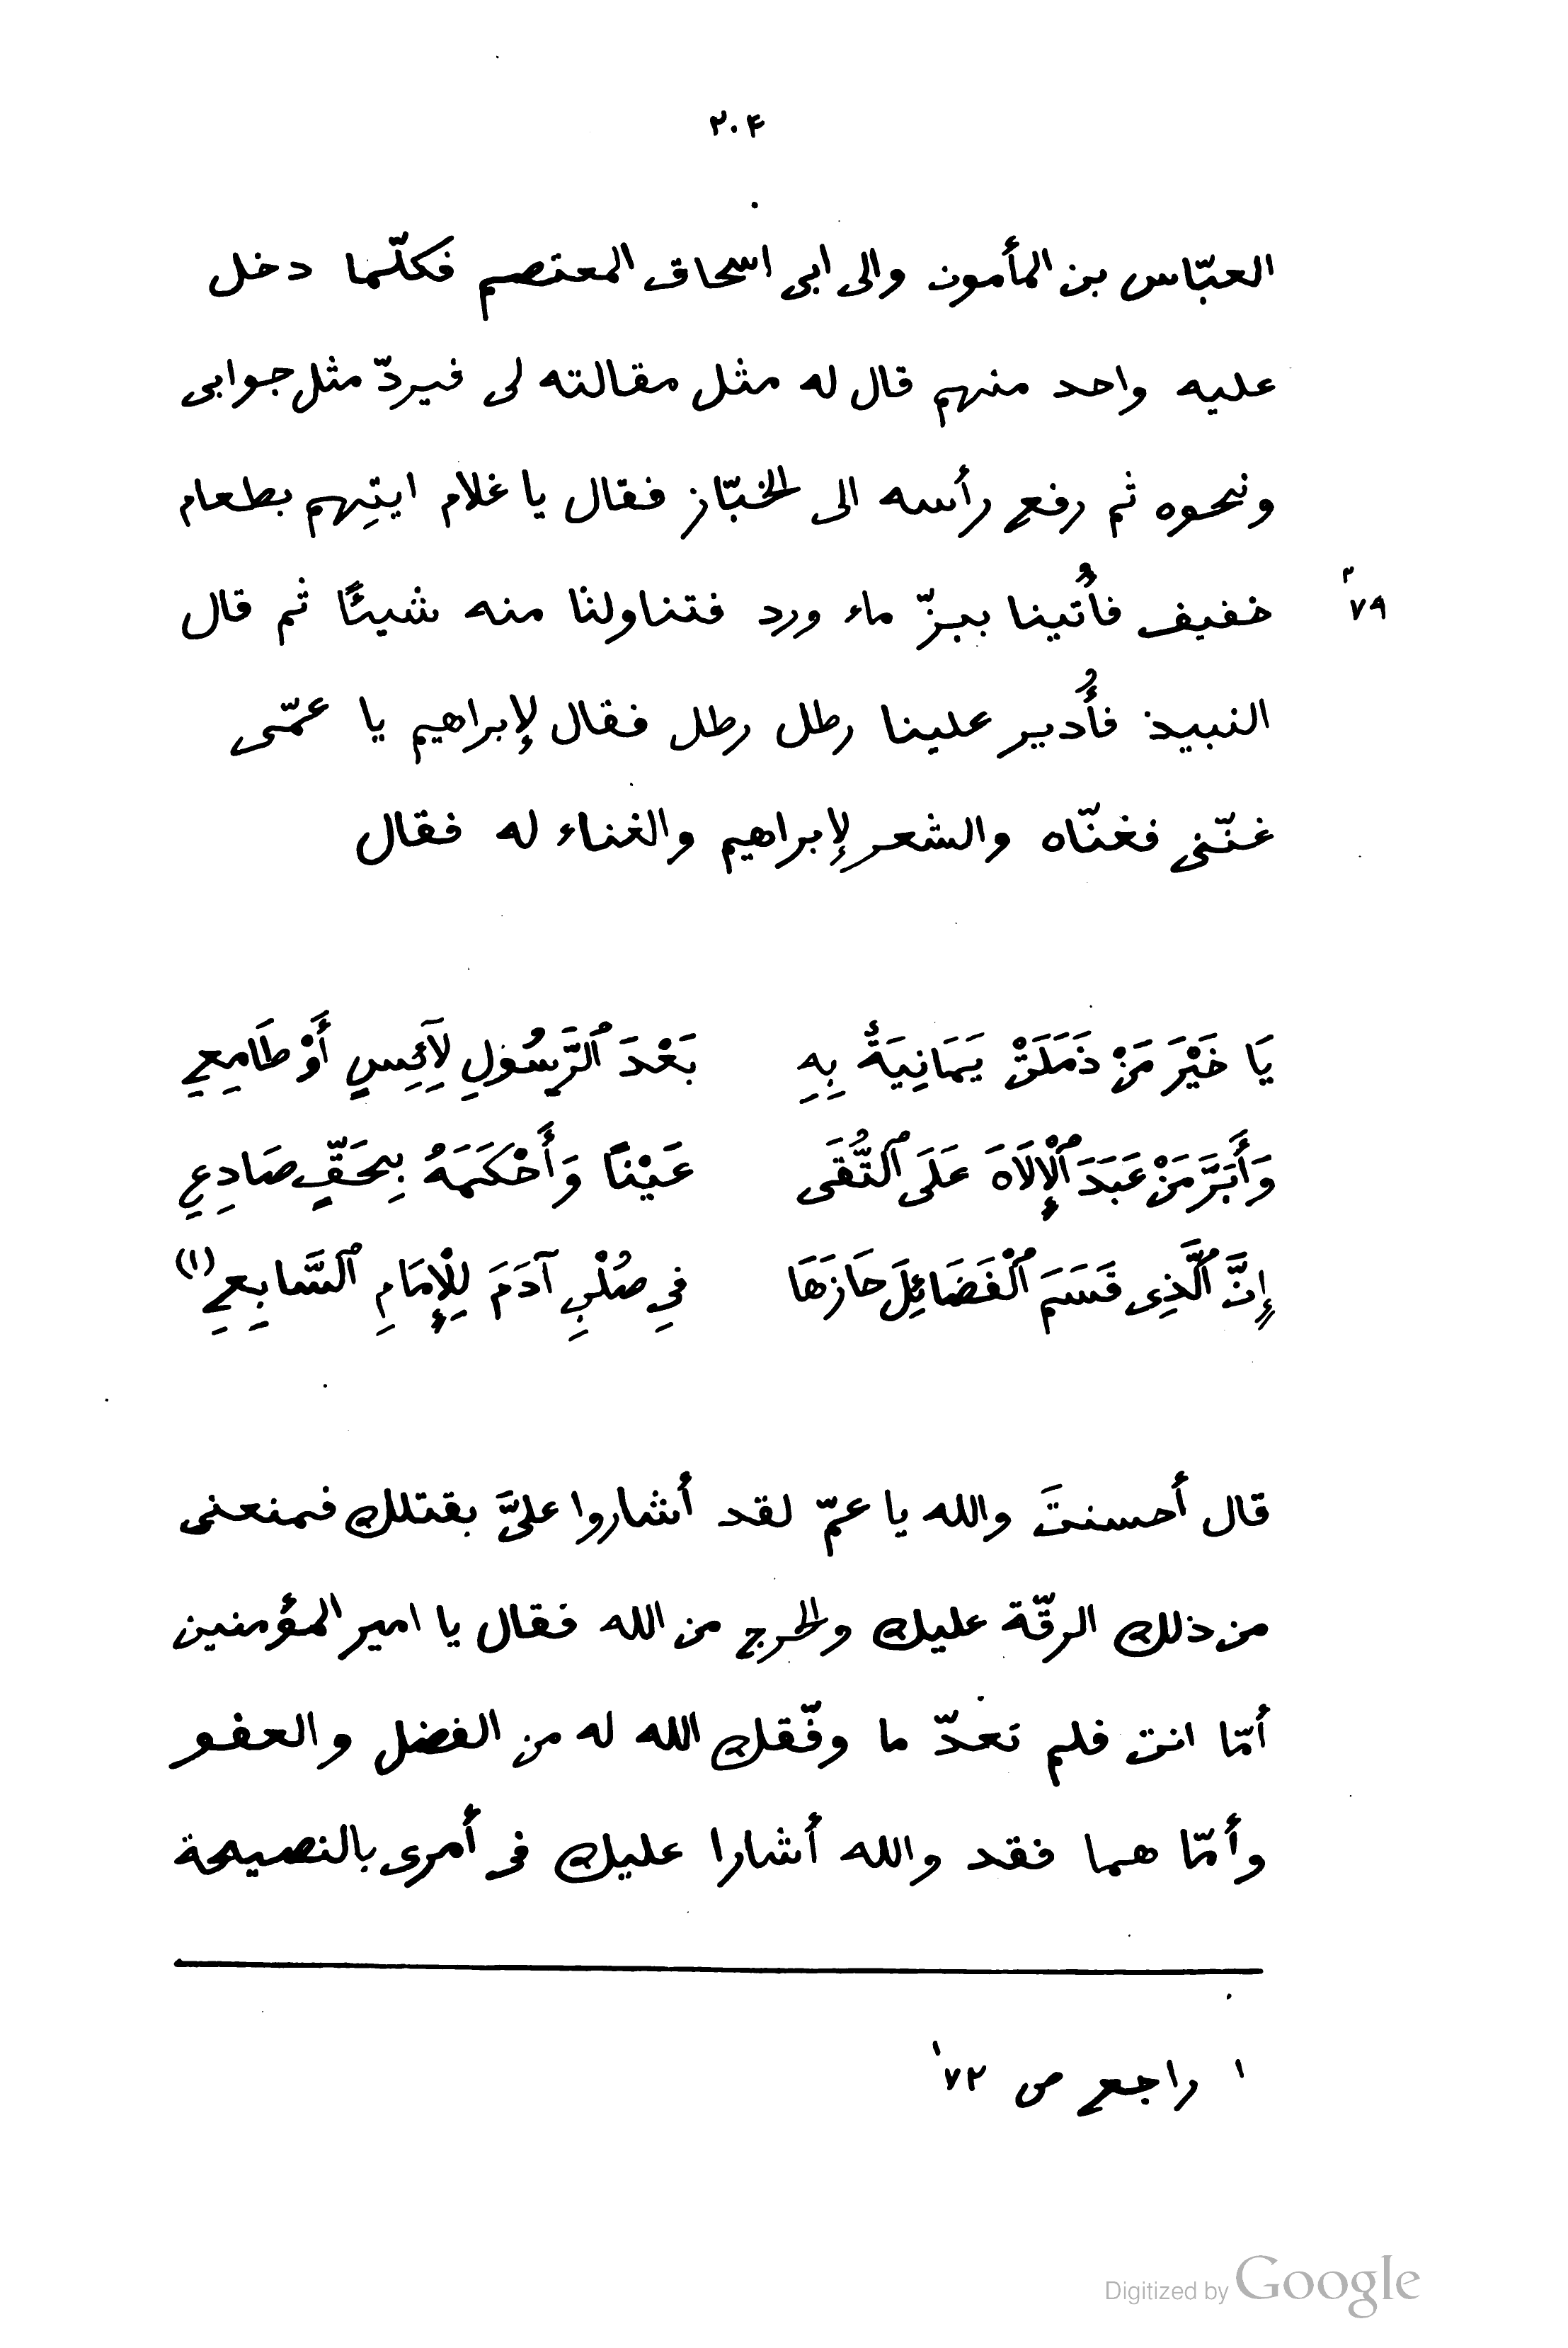 ٢٠۴
العبّاس بن المأمون والى ابى اسحاق المعتصم فكلّما دخل
عليه واحد منهم قال له مثل مقالته لى فيردّ مثل جوابى
ونحوه ثم رفع رأسه الى الخبّاز فقال يا غلام ايتِهم بطعام
خفيف فأُتينا ببزّ ماء ورد فتناولنا منه شيئًا ثم قال
٧٩
النبيذ فأُدير علينا رطل رطل فقال لإبراهيم يا عمّى
غنّنى فغنّاه والشعر لإبراهيم والغناء له فقال
يَا خَيْرَ مَنْ ذَمَلَتْ يَمَانِيَةٌ بِهِ بَعْدَ ٱلرَّسُولِ لِآئِسٍ أَوْ طَامِعِ
وَأَبَرَّ مَنْ عَبَدَ ٱلْإِلَاهَ عَلَى ٱلتُّقَى عَيْنًا وَأَحْكَمَهُ بِحَقٍّ صَادِعِ
إِنَّ ٱلَّذِى قَسَمَ ٱلْفَضَائِلَ حَازَهَا فِي صُلْبِ آدَمَ لِلْإِمَامِ ٱلسَّابِعِ (١)
قال أحسنتَ والله يا عمّ لقد أشاروا علىَّ بقتلك فمنعنى
من ذلك الرقّة عليك والحرج من الله فقال يا امير المؤمنين
أمّا انت فلم تعدّ ما وفّقك الله له من الفضل والعفو
وأمّا هما فقد والله أشارا عليك فى أمرى بالنصيحة
١ راجع ص ٧٢
Digitized by Google